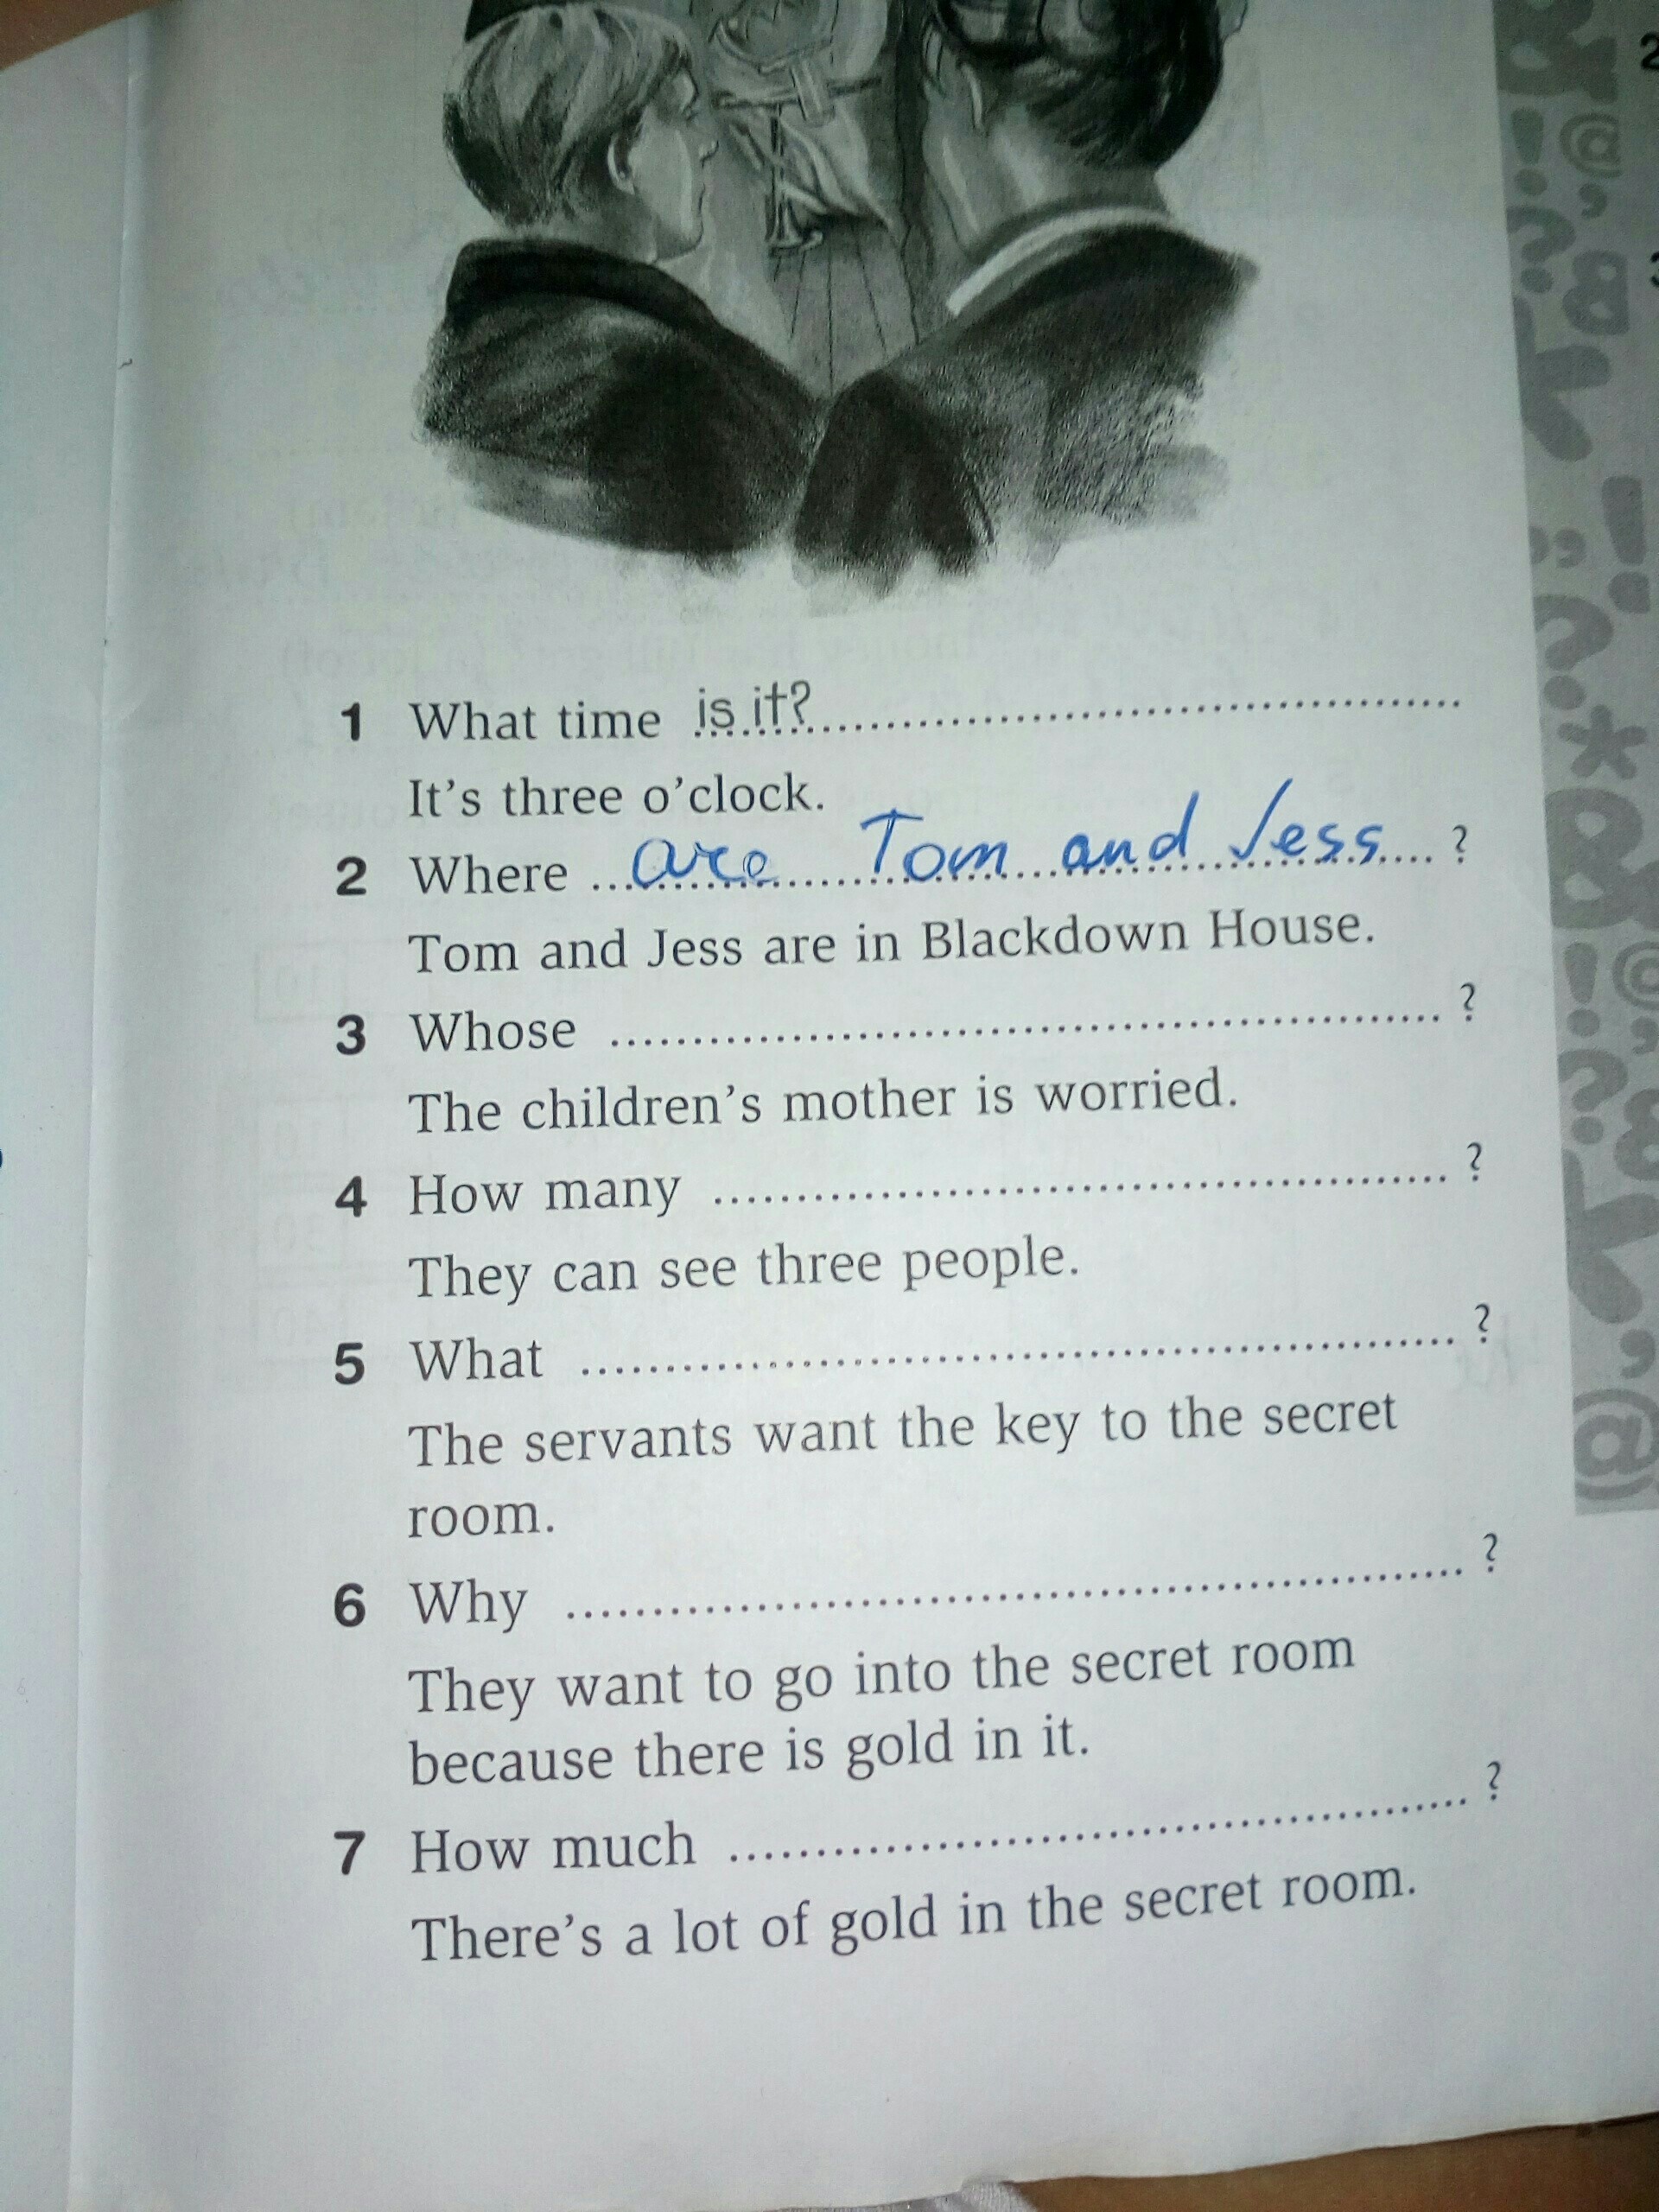 1 What time is it?
It's three o'clock.
2 Where are Tom and Jess ?
Tom and Jess are in Blackdown House.
3 Whose ?
The children's mother is worried.
4 How many ?
They can see three people.
5 What ?
The servants want the key to the secret
room.
6 Why ?
They want to go into the secret room
because there is gold in it.
7 How much ?
There's a lot of gold in the secret room.